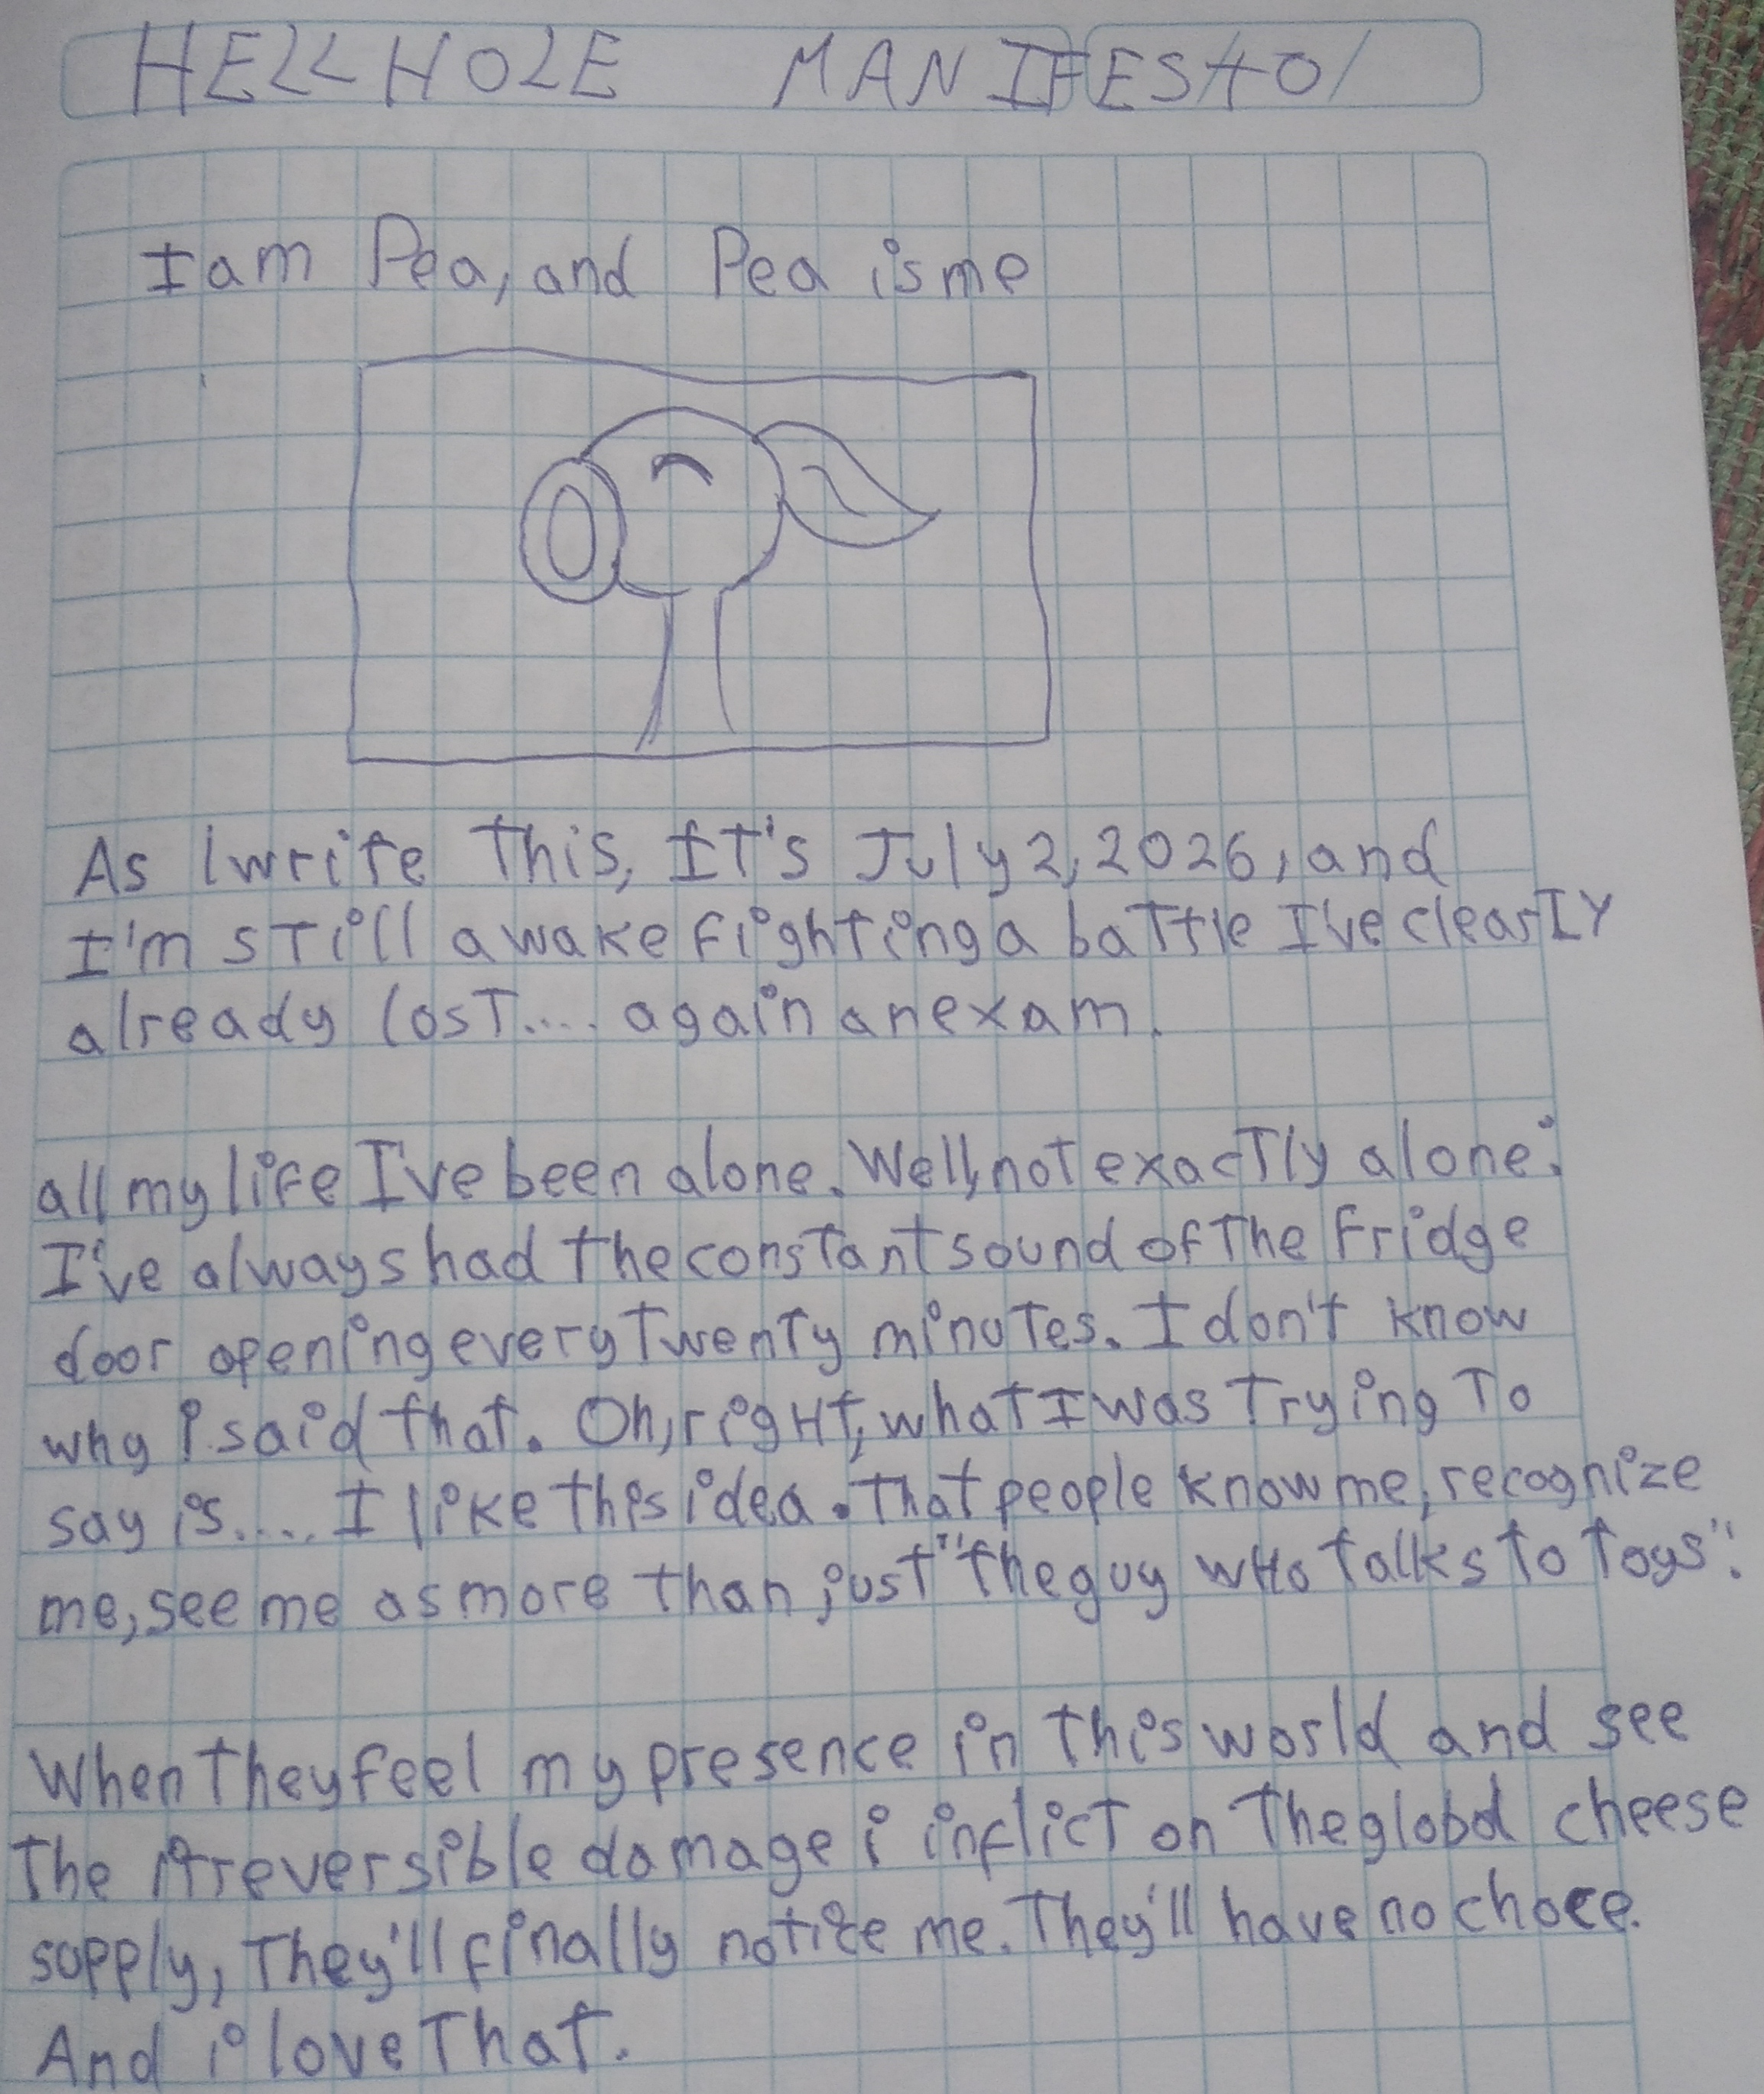 HELLHOLE MANIFESTO/
I am Pea, and Pea is me
As I write This, IT's July 2, 2026, and
I'm still awake fighting a battle I've clearly
already lost.... again an exam.
all my life I've been alone. Well, not exactly alone:
I've always had the constant sound of The Fridge
door opening every Twenty minutes. I don't know
why i said that. Oh, right, what I was Trying To
say is.... I like this idea. That people know me, recognize
me, see me as more than just "the guy who talks to Toys".
When they feel my presence in this world and see
The irreversible damage i inflict on The global cheese
supply, They'll finally notice me. They'll have no choce.
And i love That.